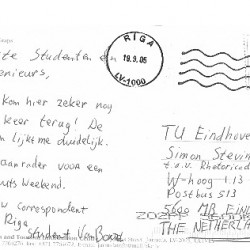 te Studenten e
enieurs,
Kom hier zeker nog
keer terug! De
n lijkt me duidelijk.
aanrader voor een
uts weekend.
w correspondent
Riga
Student Van Boord
RIGA
19.9.05
LV-1000
TU Eindhove
Simon Stevin
t.a.v. Rhetoric
W-hoog 1.13
Postbus 513
5600 MB EIND
THE NETHERL